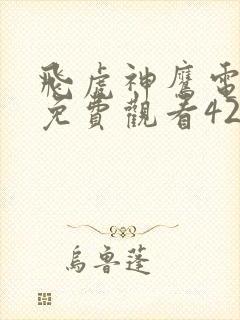 飛虎神鷹電
免費觀看42
烏魯蓬